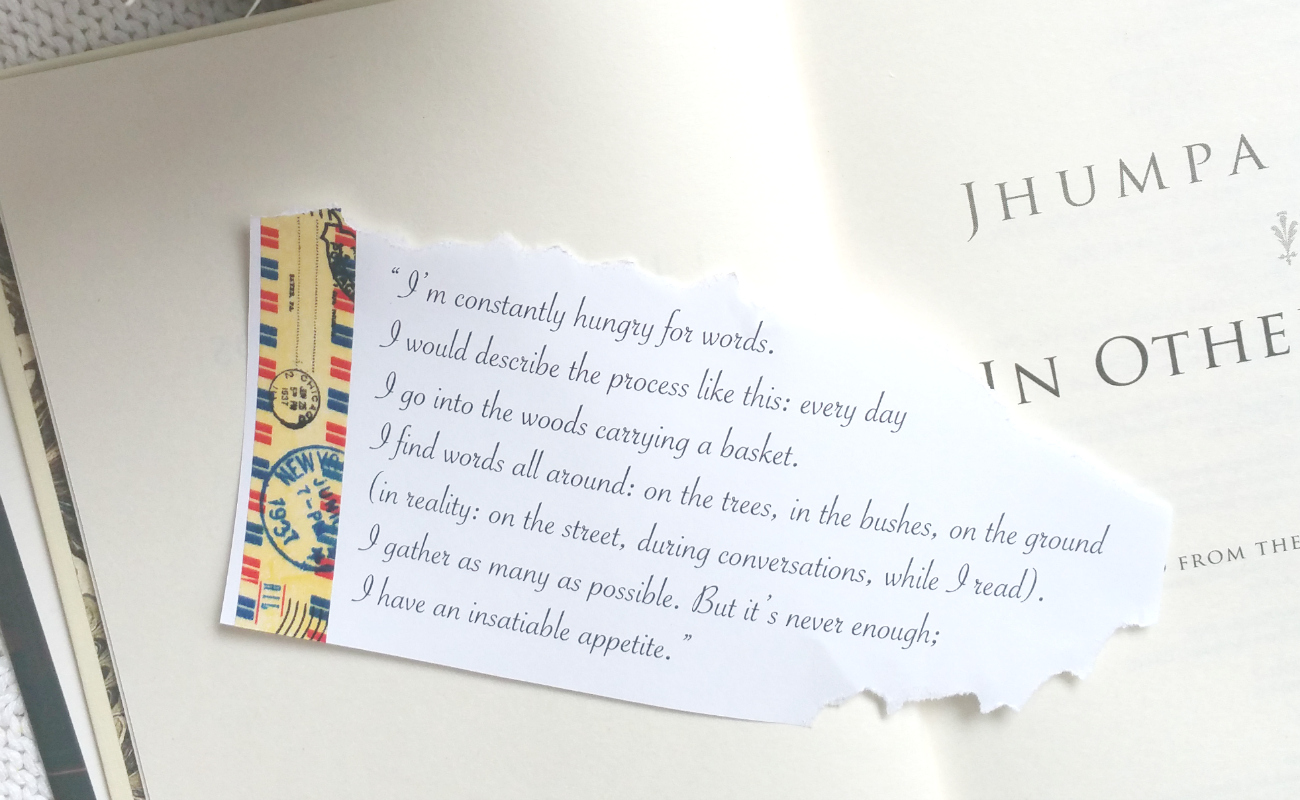 “I’m constantly hungry for words.
I would describe the process like this: every day
I go into the woods carrying a basket.
I find words all around: on the trees, in the bushes, on the ground
(in reality: on the street, during conversations, while I read).
I gather as many as possible. But it’s never enough;
I have an insatiable appetite.”
JHUMPA
IN OTHE
FROM THE
CHICAGO
1937
NEW Y
JUN
7-P
1937